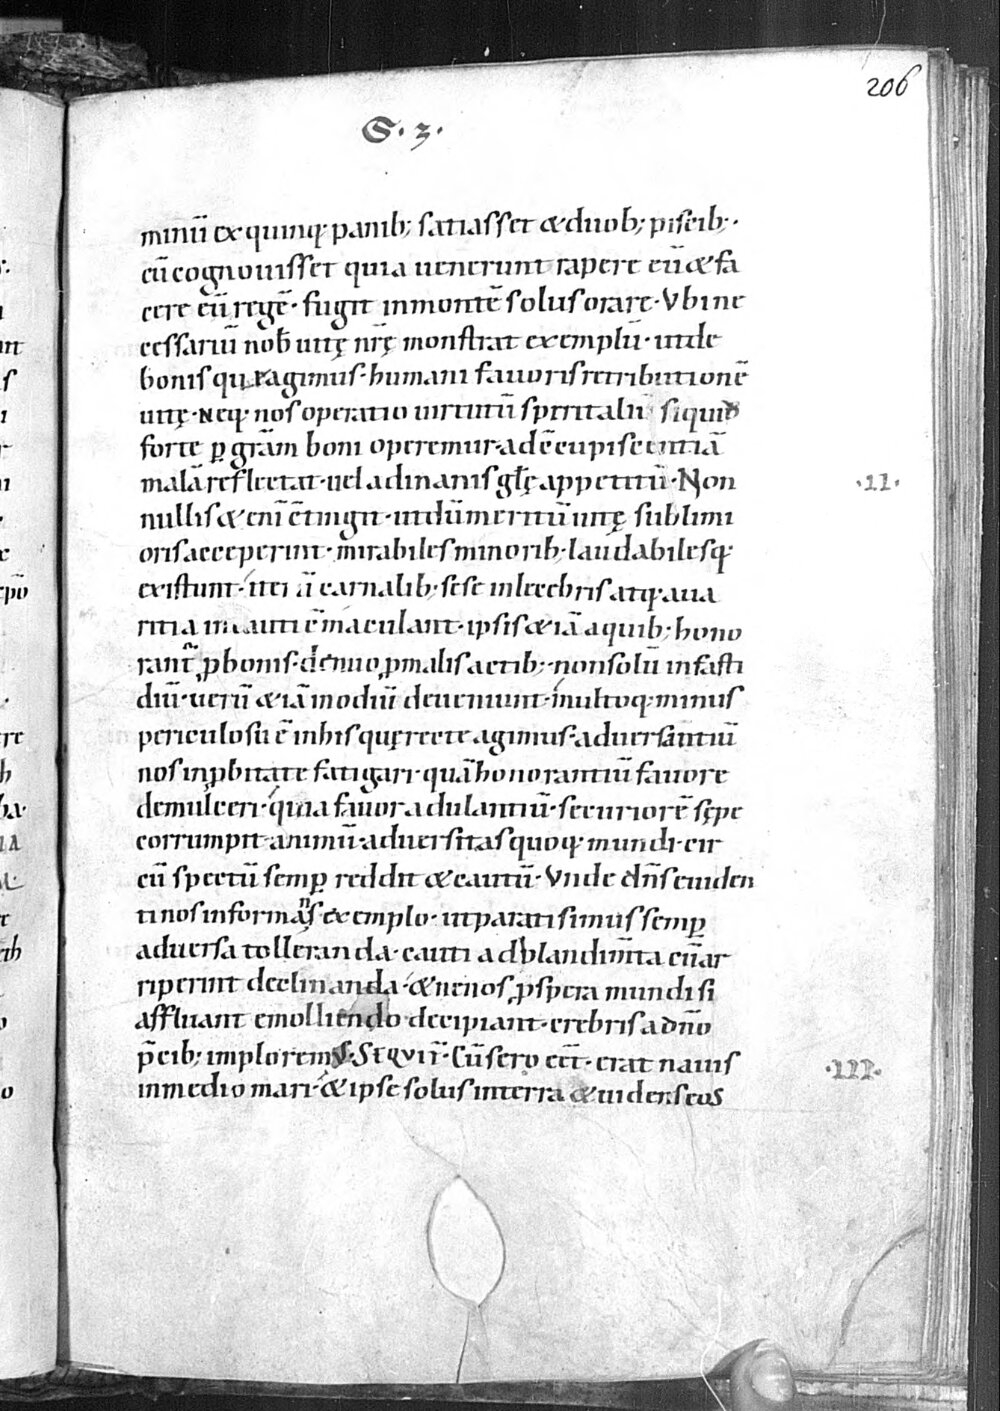 206
S. 3.
minū ex quinq; panib; satiasset & duob; piscib;.
cū cognouisset quia uenerunt rapere eū & fa
cere eū regē. fugit inmontē solus orare. Vbi ne
cessariū nob̄ uitę nr̄ę monstrat exemplū. ut de
bonis quę agimus. humani fauoris retributionē
uitę. neq; nos operatio uirtutū spiritaliū siquid
forte p̱ gr̄am boni operemur. ad ccupiscentiā
malā reflectat. uel ad inanis gl̄ę appetitū. Non
.II.
nullis & eni c̄tingit. ut dū meritū uitę sublimi
oris acceperint. mirabiles minorib; laudabilesq;
existunt. carnalib; sese inlecebris atq; aua
ritia incauti c̄maculant. ipsis & iā a quib; hono
rant̄ p̱ bonis. denuo p̱ malis actib; non solū infasti
diū. uerū & iā inodiū deueniunt. multoq; minus
periculosū ē inhis quę recte agimus. aduersantiū
nos inp̱bitate fatigari. quā honorantiū fauore
demulceri. quia fauor adulantiū. securiorē sępe
corrumpit animū. aduersitas quoq; mundi. cir
cū spectū semp̱ reddit & cautū. Vnde dn̄s euiden
ti nos informās exemplo. ut parati simus semp̱
aduersa tolleranda. cauti ad blandim̄ta cū ar
riperint declinanda. & ne nos p̱spera mundi si
affluant emolliendo decipiant. crebris a dn̄o
p̄cib; implorem;. SEQVIT̄. Cū sero eēt. erat nauis
.III.
inmedio mari. & ipse solus interra & uidens eos